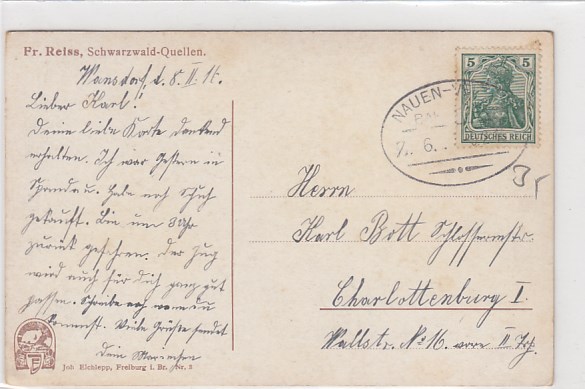 Fr. Reiss, Schwarzwald-Quellen.
Wansdorf, d. 8. II. 15.
Lieber Karl!
Deine liebe Karte dankend
erhalten. Ich war gestern in
Spandau. Habe noch Schuh
gekauft. Bin um 8 Uhr
zurück gefahren. Der Zug
wird auch für Dich ganz gut
passen. Schreibe noch wenn du
kommst. Viele Grüße sendet
Dein Mariechen
Jos. Elchlepp, Freiburg i. Br. Nr. 3
NAUEN-
5 5
DEUTSCHES REICH
Herrn
Karl Bott Schlossermstr.
Charlottenburg I.
Wallstr. No 16. vorn II. Trp.